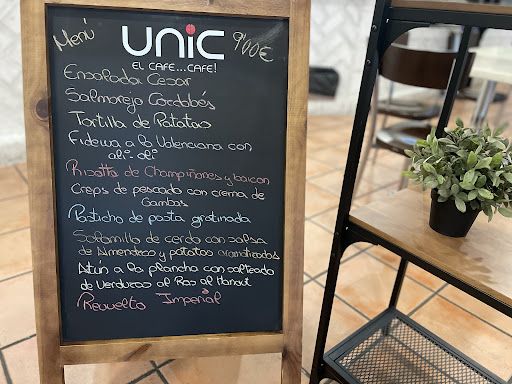 Menú UNiC 9'00€
EL CAFE...CAFE!
Ensalada Cesar
Salmorejo Cordobés
Tortilla de Patatas
Fideua a la Valenciana con
ali-oli
Risotto de Champiñones y baicon
Creps de pescado con crema de
Gambas
Pasticho de pasta gratinada
Solomillo de cerdo con salsa
de Almendras y patatas aromatizadas
Atun a la plancha con salteado
de Verduras al Ras al Hanut
Revuelto Imperial